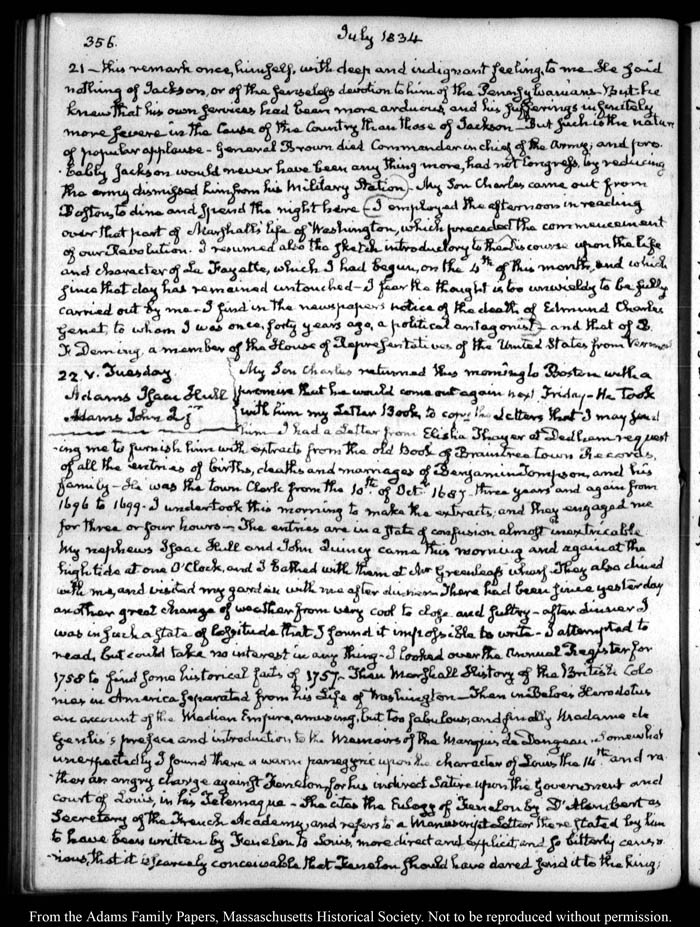 356.
July 1834
21 - this remark once, himself, with deep and indignant feeling, to me. He said
nothing of Jackson, or of the senseless devotion to him of the Pennsylvanians. But he
knew that his own services had been more arduous, and his sufferings infinitely
more severe in the Cause of the Country than those of Jackson - But such is the nature
of popular applause - General Brown died Commander in chief of the Army; and pro-
bably Jackson would never have been any thing more, had not Congress, by reducing
the army dismissed him from his Military Station - My Son Charles came out from
Boston, to dine and spend the night here - I employed the afternoon in reading
over that part of Marshall's life of Washington, which preceded the commencement
of our Revolution. I resumed also the sketch introductory to the Discourse upon the life
and character of La Fayette, which I had begun, on the 4th of this month, and which
since that day has remained untouched - I fear the thought is too unwieldy to be fully
carried out by me - I find in the newspapers notice of the death of Edmund Charles
Genet, to whom I was once, forty years ago, a political antagonist - and that of B.
F. Deming, a member of the House of Representatives of the United States from Vermont
22. V. Tuesday.
Adams Isaac Hull
Adams John Q. jr
My Son Charles returned this morning to Boston with a
promise that he would come out again next Friday - He took
with him my Letter Book, to copy the Letters that I may send
him - I had a Letter from Elisha Thayer at Dedham request-
ing me to furnish him with extracts from the old Book of Braintree town Records,
of all the entries of births, deaths and marriages of Benjamin Tompson, and his
family - He was the town Clerk from the 10th of Octr 1687 three years and again from
1696 to 1699. I undertook this morning to make the extracts, and they engaged me
for three or four hours - The entries are in a state of confusion almost inextricable
My nephews Isaac Hull and John Quincy came this morning and again at the
high tide at one O'Clock, and I bathed with them at Mr Greenleaf's wharf. They also dined
with me, and visited my garden with me after dinner. There had been since yesterday
another great change of weather from very cool to close and sultry - after dinner I
was in such a state of lassitude that I found it impossible to write - I attempted to
read, but could take no interest in any thing - I looked over the Annual Register for
1758 to find some historical facts of 1757 - Then Marshall History of the British Colo-
nies in America separated from his Life of Washington - Then in Beloe's Herodotus
an account of the Median Empire, amusing, but too fabulous, and finally Madame de
Genlis's preface and introduction to the Memoirs of the Marquis de Dangeau - Somewhat
unexpectedly I found there a warm panegyric upon the character of Louis the 14th and ra-
ther an angry charge against Fenelon for his indirect Satire upon the Government and
court of Louis, in his Telemaque - She cites the Eulogy of Fenelon by D'Alembert as
Secretary of the French Academy, and refers to a Manuscript Letter there stated by him
to have been written by Fenelon to Louis, more direct and explicit, and so bitterly censo-
rious, that it is scarcely conceivable that Fenelon should have dared send it to the king;
From the Adams Family Papers, Massachusetts Historical Society. Not to be reproduced without permission.